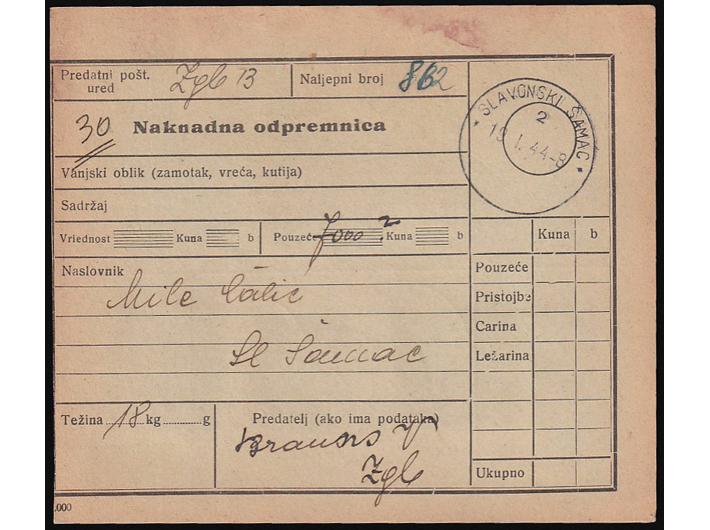 Predatni pošt. ured Zgb 13 Naljepni broj 862
30 Naknadna odpremnica
Vanjski oblik (zamotak, vreća, kutija)
Sadržaj
Vriednost Kuna b Pouzeće 7000 Kuna b
Naslovnik
Mile Ćalić
Sl Šamac
Težina 18 kg g
Predatelj (ako ima podataka)
Zgb
.000
SLAVONSKI ŠAMAC
2
19 I. 44-8
Kuna b
Pouzeće
Pristojbe
Carina
Ležarina
Ukupno